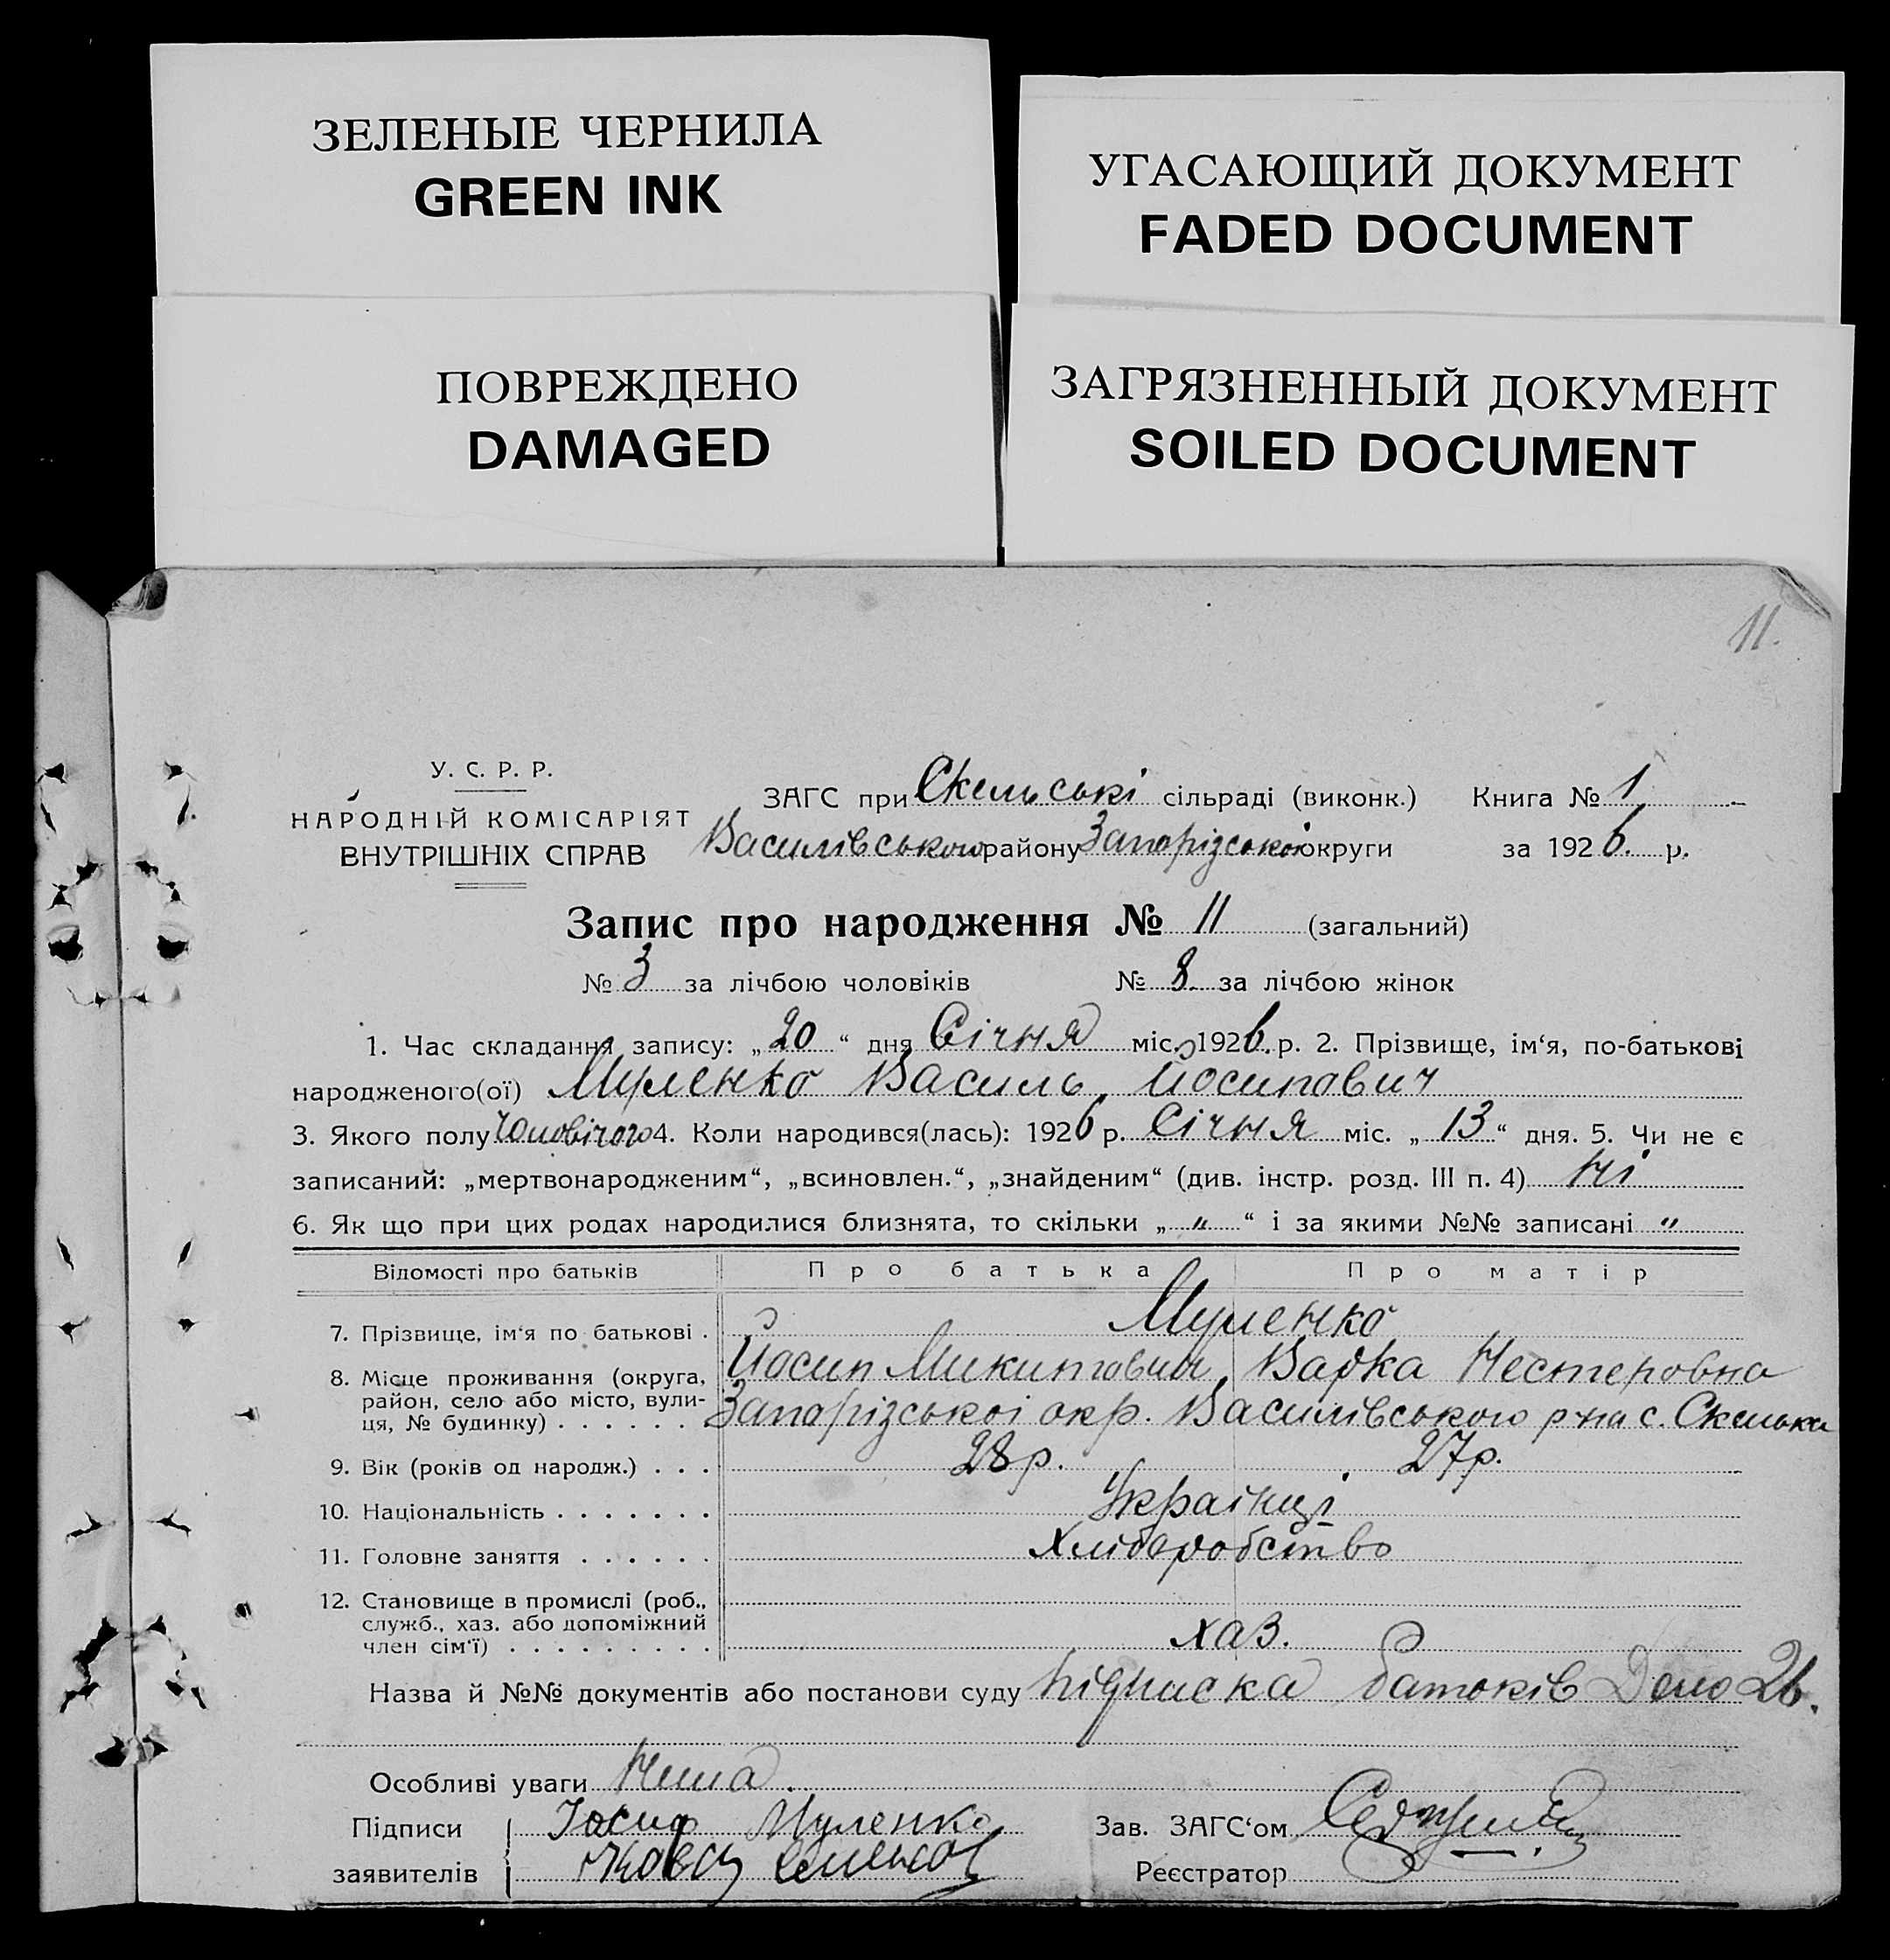 ЗЕЛЕНЫЕ ЧЕРНИЛА
GREEN INK
УГАСАЮЩИЙ ДОКУМЕНТ
FADED DOCUMENT
ПОВРЕЖДЕНО
DAMAGED
ЗАГРЯЗНЕННЫЙ ДОКУМЕНТ
SOILED DOCUMENT
11.
У. С. Р. Р.
НАРОДНІЙ КОМІСАРІЯТ
ВНУТРІШНІХ СПРАВ
ЗАГС при Скельські сільраді (виконк.) Книга № 1
Василівського району Запорізської округи за 1926. р.
Запис про народження № 11 (загальний)
№ 3 за лічбою чоловіків № 8. за лічбою жінок
1. Час складання запису: „20“ дня Січня міс. 1926. р. 2. Прізвище, ім‘я, по-батькові
народженого(ої) Муленко Василь Йосипович
3. Якого полу Чоловічого 4. Коли народився(лась): 1926 р. Січня міс. „13“ дня. 5. Чи не є
записаний: „мертвонародженим“, „всиновлен.“, „знайденим“ (див. інстр. розд. III п. 4) Ні
6. Як що при цих родах народилися близнята, то скільки „ " “ і за якими №№ записані "
Відомості про батьків Про батька Про матір
7. Прізвище, ім‘я по батькові . Муленко
Йосип Микитович Вадка Нестеровна
8. Місце проживання (округа,
район, село або місто, вули-
ця, № будинку) . . . . . . Запорізської окр. Василівського р-на с. Скельки
9. Вік (років од народж.) . . . 28 р. 27 р.
10. Національність . . . . . . . Українці
11. Головне заняття . . . . . . Хліборобство
12. Становище в промислі (роб.,
служб., хаз. або допоміжний
член сім‘ї) . . . . . . . . . хаз.
Назва й №№ документів або постанови суду підписка батьків Дело 2в.
Особливі уваги Нима.
Підписи Іосиф Муленко Зав. ЗАГС‘ом
заявителів Реєстратор